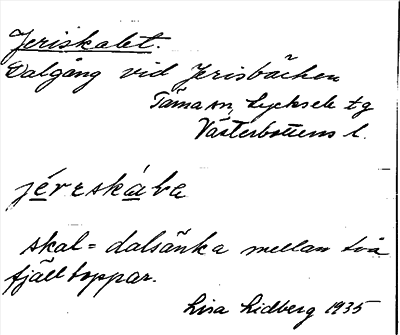 Jeriskalet.
Dalgång vid Jerisbäcken
Tärna sn, Lycksele tg
Västerbottens l.
jéreskáĺve
skal = dalsänka mellan två
fjälltoppar.
Lisa Lidberg 1935